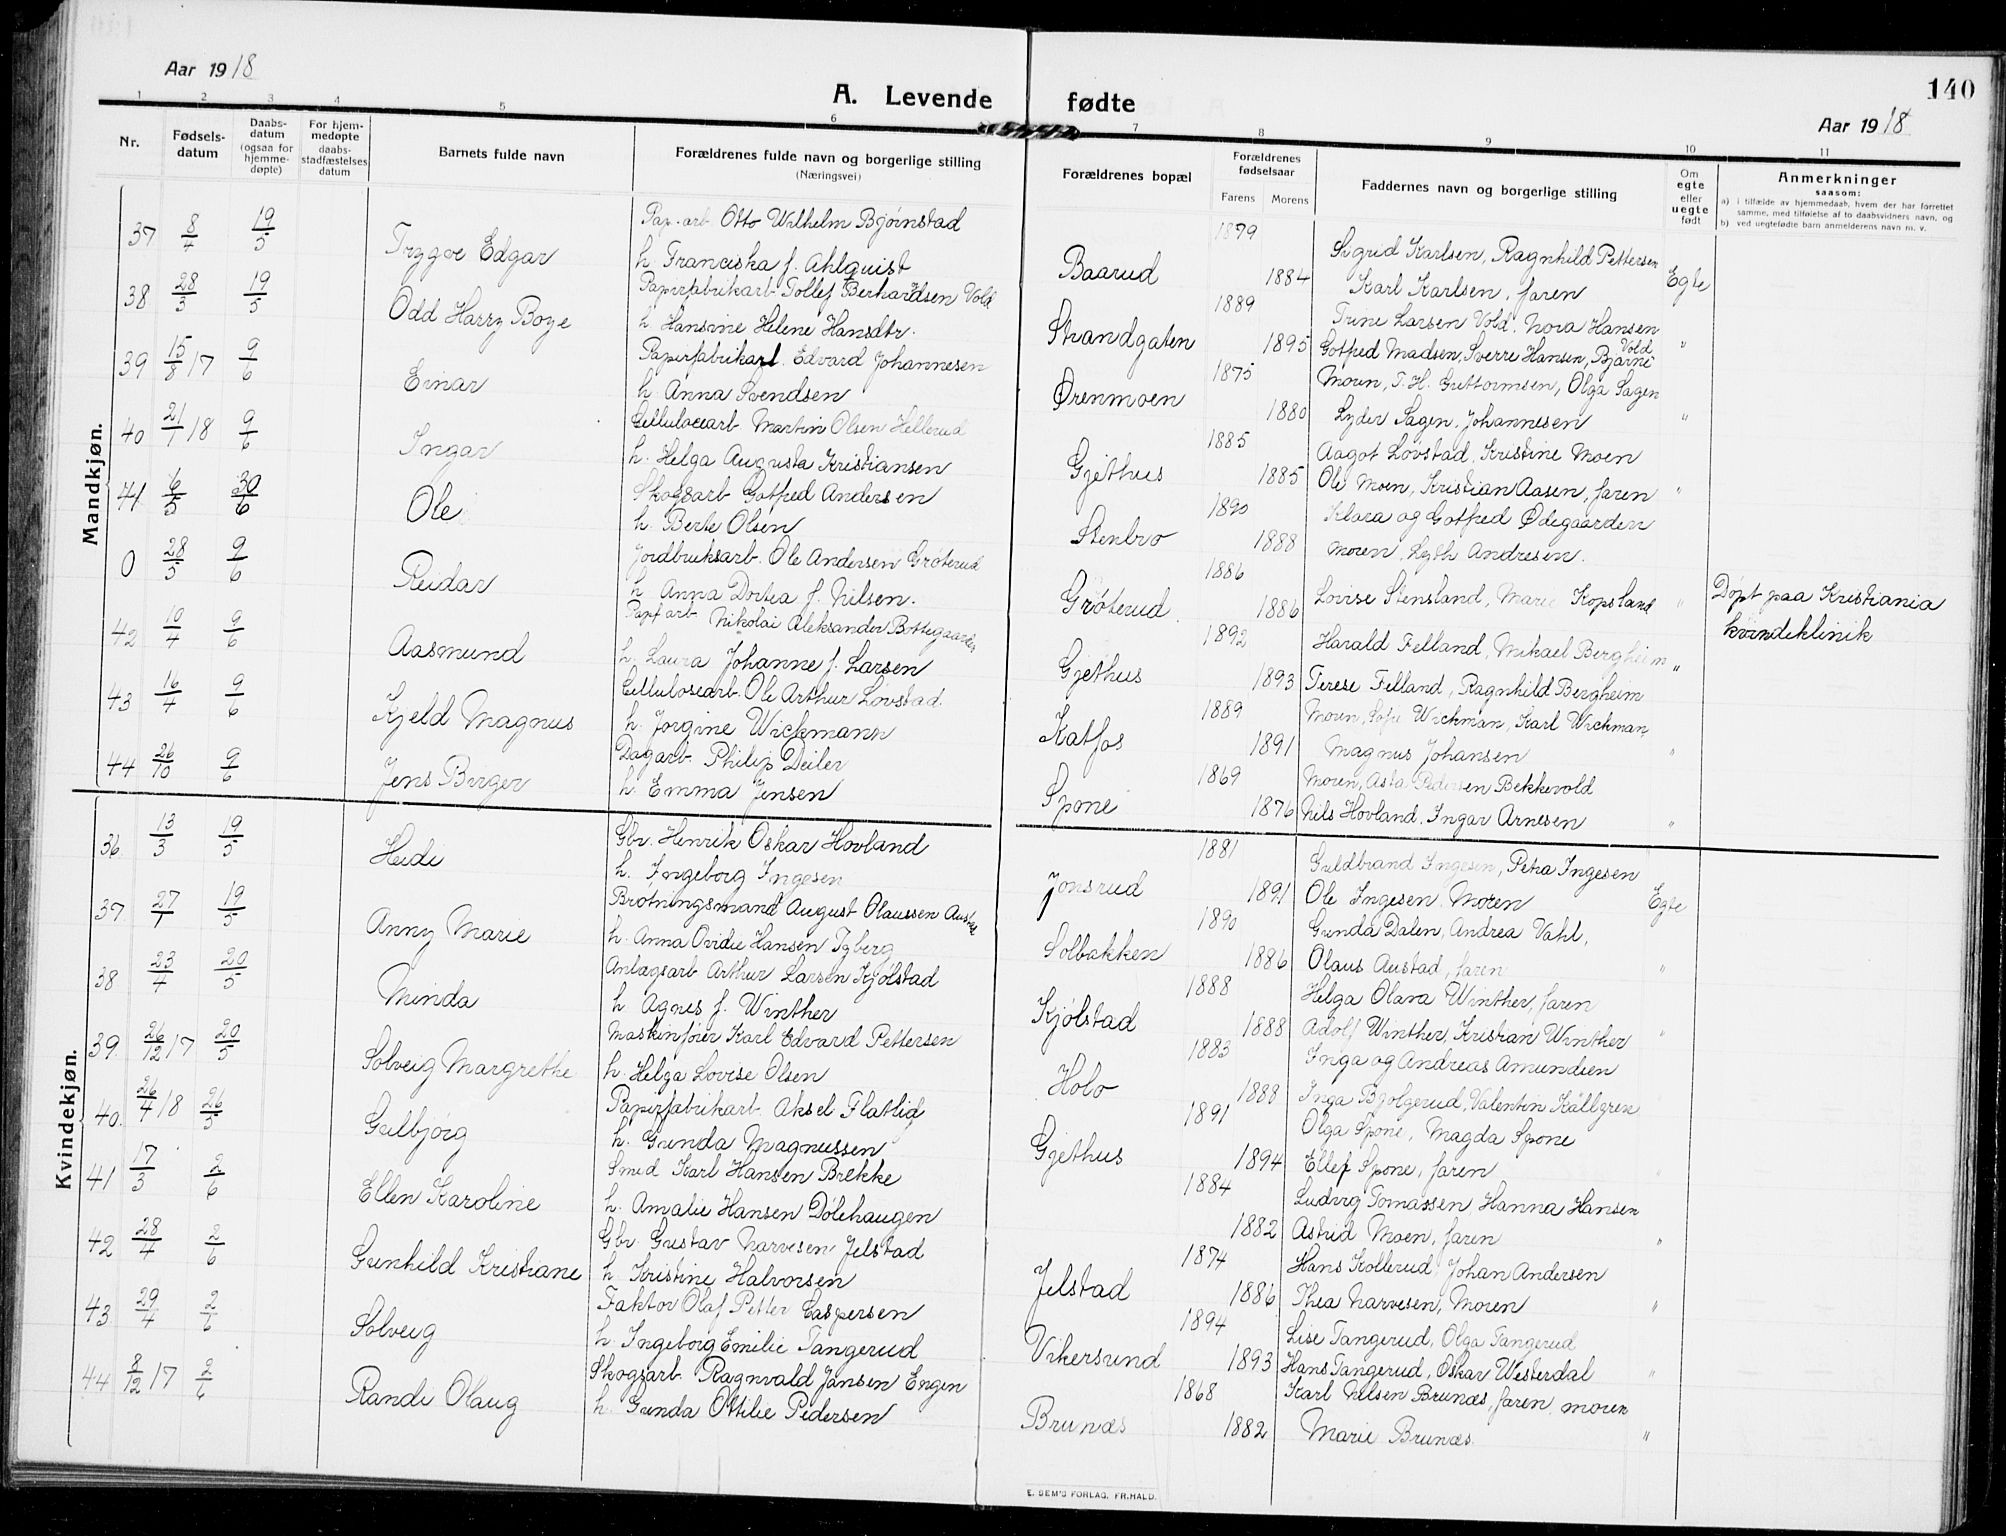 Aar 1918
A. Levende fødte
140
Aar 1918
1 2 3 4 5 6 7 8 9 10 11
Nr.
Fødselsdatum
Daabsdatum (ogsaa for hjemmedøpte)
For hjemmedøpte daabsstadfæstelses datum
Barnets fulde navn
Forældrenes fulde navn og borgerlige stilling
(Næringsvei)
Forældrenes bopæl
Forældrenes fødselsaar
Farens Morens
Faddernes navn og borgerlige stilling
Om egte eller uegte født
Anmerkninger
saasom:
a) i tilfælde av hjemmedaab, hvem der har forrettet samme, med tilføielse af to daabsvidners navn, og
b) ved uegtefødte barn anmelderens navn m. v.
Mandkjøn.
37 8/4 19/5 Trygve Edgar Pap.arb. Otto Wilhelm Bjørnstad
h. Franciska f. Ahlquist
Baarud 1879 1884 Sigrid Karlsen, Ragnhild Pettersen
Karl Karlsen, faren Egte
38 28/3 19/5 Odd Harry Boye Papirfabrikarb. Tollef Berhardsen Vold
h. Hansine Helene Hansdtr.
Strandgaten 1889 1895 Trine Larsen Vold, Nora Hansen Vold
Gotfred Madsen, Sverre Hansen, Bjarne "
39 15/8 17 9/6 Einar Papirfabrikarb. Edvard Johannesen
h. Anna Svendsen
Ørenmoen 1875 1880 Moren, T. H. Guttormsen, Olga Sagen
Lyder Sagen, Johannesen "
40 21/1 18 9/6 Ingar Cellulosearb. Martin Olsen Hellerud
h. Helga Augusta Kristiansen
Gjethus 1885 1885 Aagot Lovstad, Kristine Moen
Ole Moen, Kristian Aasen, faren "
41 6/5 30/6 Ole Skogsarb. Gotfred Andersen
h. Berte Olsen
Stenbro 1890 1888 Klara og Gotfred Ødegaarden
moren, Lyth Andresen.
0 28/5 9/6 Reidar Jordbruksarb. Ole Andersen Grøterud
h. Anna Dortea f. Nilsen.
Grøterud 1886 1886 Lovise Stensland, Marie Kopsland "
Døpt paa Kristiania
kvindeklinik
42 10/4 9/6 Aasmund Papf arb. Nikolai Aleksander Bottegaarden
h. Laura Johanne f. Larsen
Gjethus 1892 1893 Harald Felland, Mikael Bergheim "
Terese Felland, Ragnhild Bergheim
43 16/4 9/6 Kjeld Magnus Cellulosearb. Ole Arthur Lovstad
h. Jorgine Wickmann
Katfos 1889 1891 Moren, Sofie Wickman, Karl Wickman,
Magnus Johansen "
44 26/10 9/6 Jens Birger Dagarb. Philip Deiler
h. Emma Jensen
Spone 1869 1876 Moren, Asta Pedersen Bekkevold
Nils Hovland, Ingar Arnesen "
Kvindekjøn.
36 13/3 19/5 Heidi Gbr. Henrik Oskar Hovland
h. Ingeborg Ingesen
Jonsrud 1881 1891 Guldbrand Ingesen, Petra Ingesen
Ole Ingesen, Moren Egte
37 27/1 19/5 Anny Marie Brøtningsmand August Olaussen Austad
h. Anna Ovidie Hansen Tyberg
Solbakken 1890 1886 Gunda Dalen, Andrea Vahl,
Olaus Austad, faren "
38 23/4 20/5 Minda Anlægsarb. Arthur Larsen Kjølstad
h. Agnes f. Winther
Kjølstad 1888 1888 Helga Olava Winther, faren
Adolf Winther, Kristian Winther "
39 26/12 17 20/5 Solveig Margrethe Maskinfører Karl Edvard Pettersen
h. Helga Lovise Olsen
Holo 1883 1888 Inga og Andreas Amundsen
Inga Bjølgerud, Valentin Källgren
40 26/4 18 26/5 Gulbjørg Papirfabrikarb. Aksel Flatlid
h. Gunda Magnussen
Gjethus 1891 1894 Olga Spone, Magda Spone
Ellef Spone, faren
41 17/3 2/6 Ellen Karoline Smed Karl Hansen Brekke
h. Amalie Hansen Dølehaugen
1884 1882 Ludvig Tomassen, Hanna Hansen
Astrid Moen, faren "
42 28/4 2/6 Gunhild Kristiane Gbr. Gustav Narvesen Jelstad
h. Kristine Halvorsen
Jelstad 1874 1886 Hans Kollerud, Johan Andersen
Thea Narvesen, Moren "
43 29/4 2/6 Solveig Faktor Olaf Petter Caspersen
h. Ingeborg Emilie Tangerud
Vikersund 1894 1893 Lise Tangerud, Olga Tangerud
Hans Tangerud, Oskar Westerdal "
44 8/12 17 2/6 Randi Olaug Skogsarb. Ragnvald Jansen Engen
h. Gunda Ottilie Pedersen
Brunæs 1868 1882 Karl Nilsen Brunæs, faren, moren
Marie Brunæs. "
E. SEM'S FORLAG, FR.HALD.